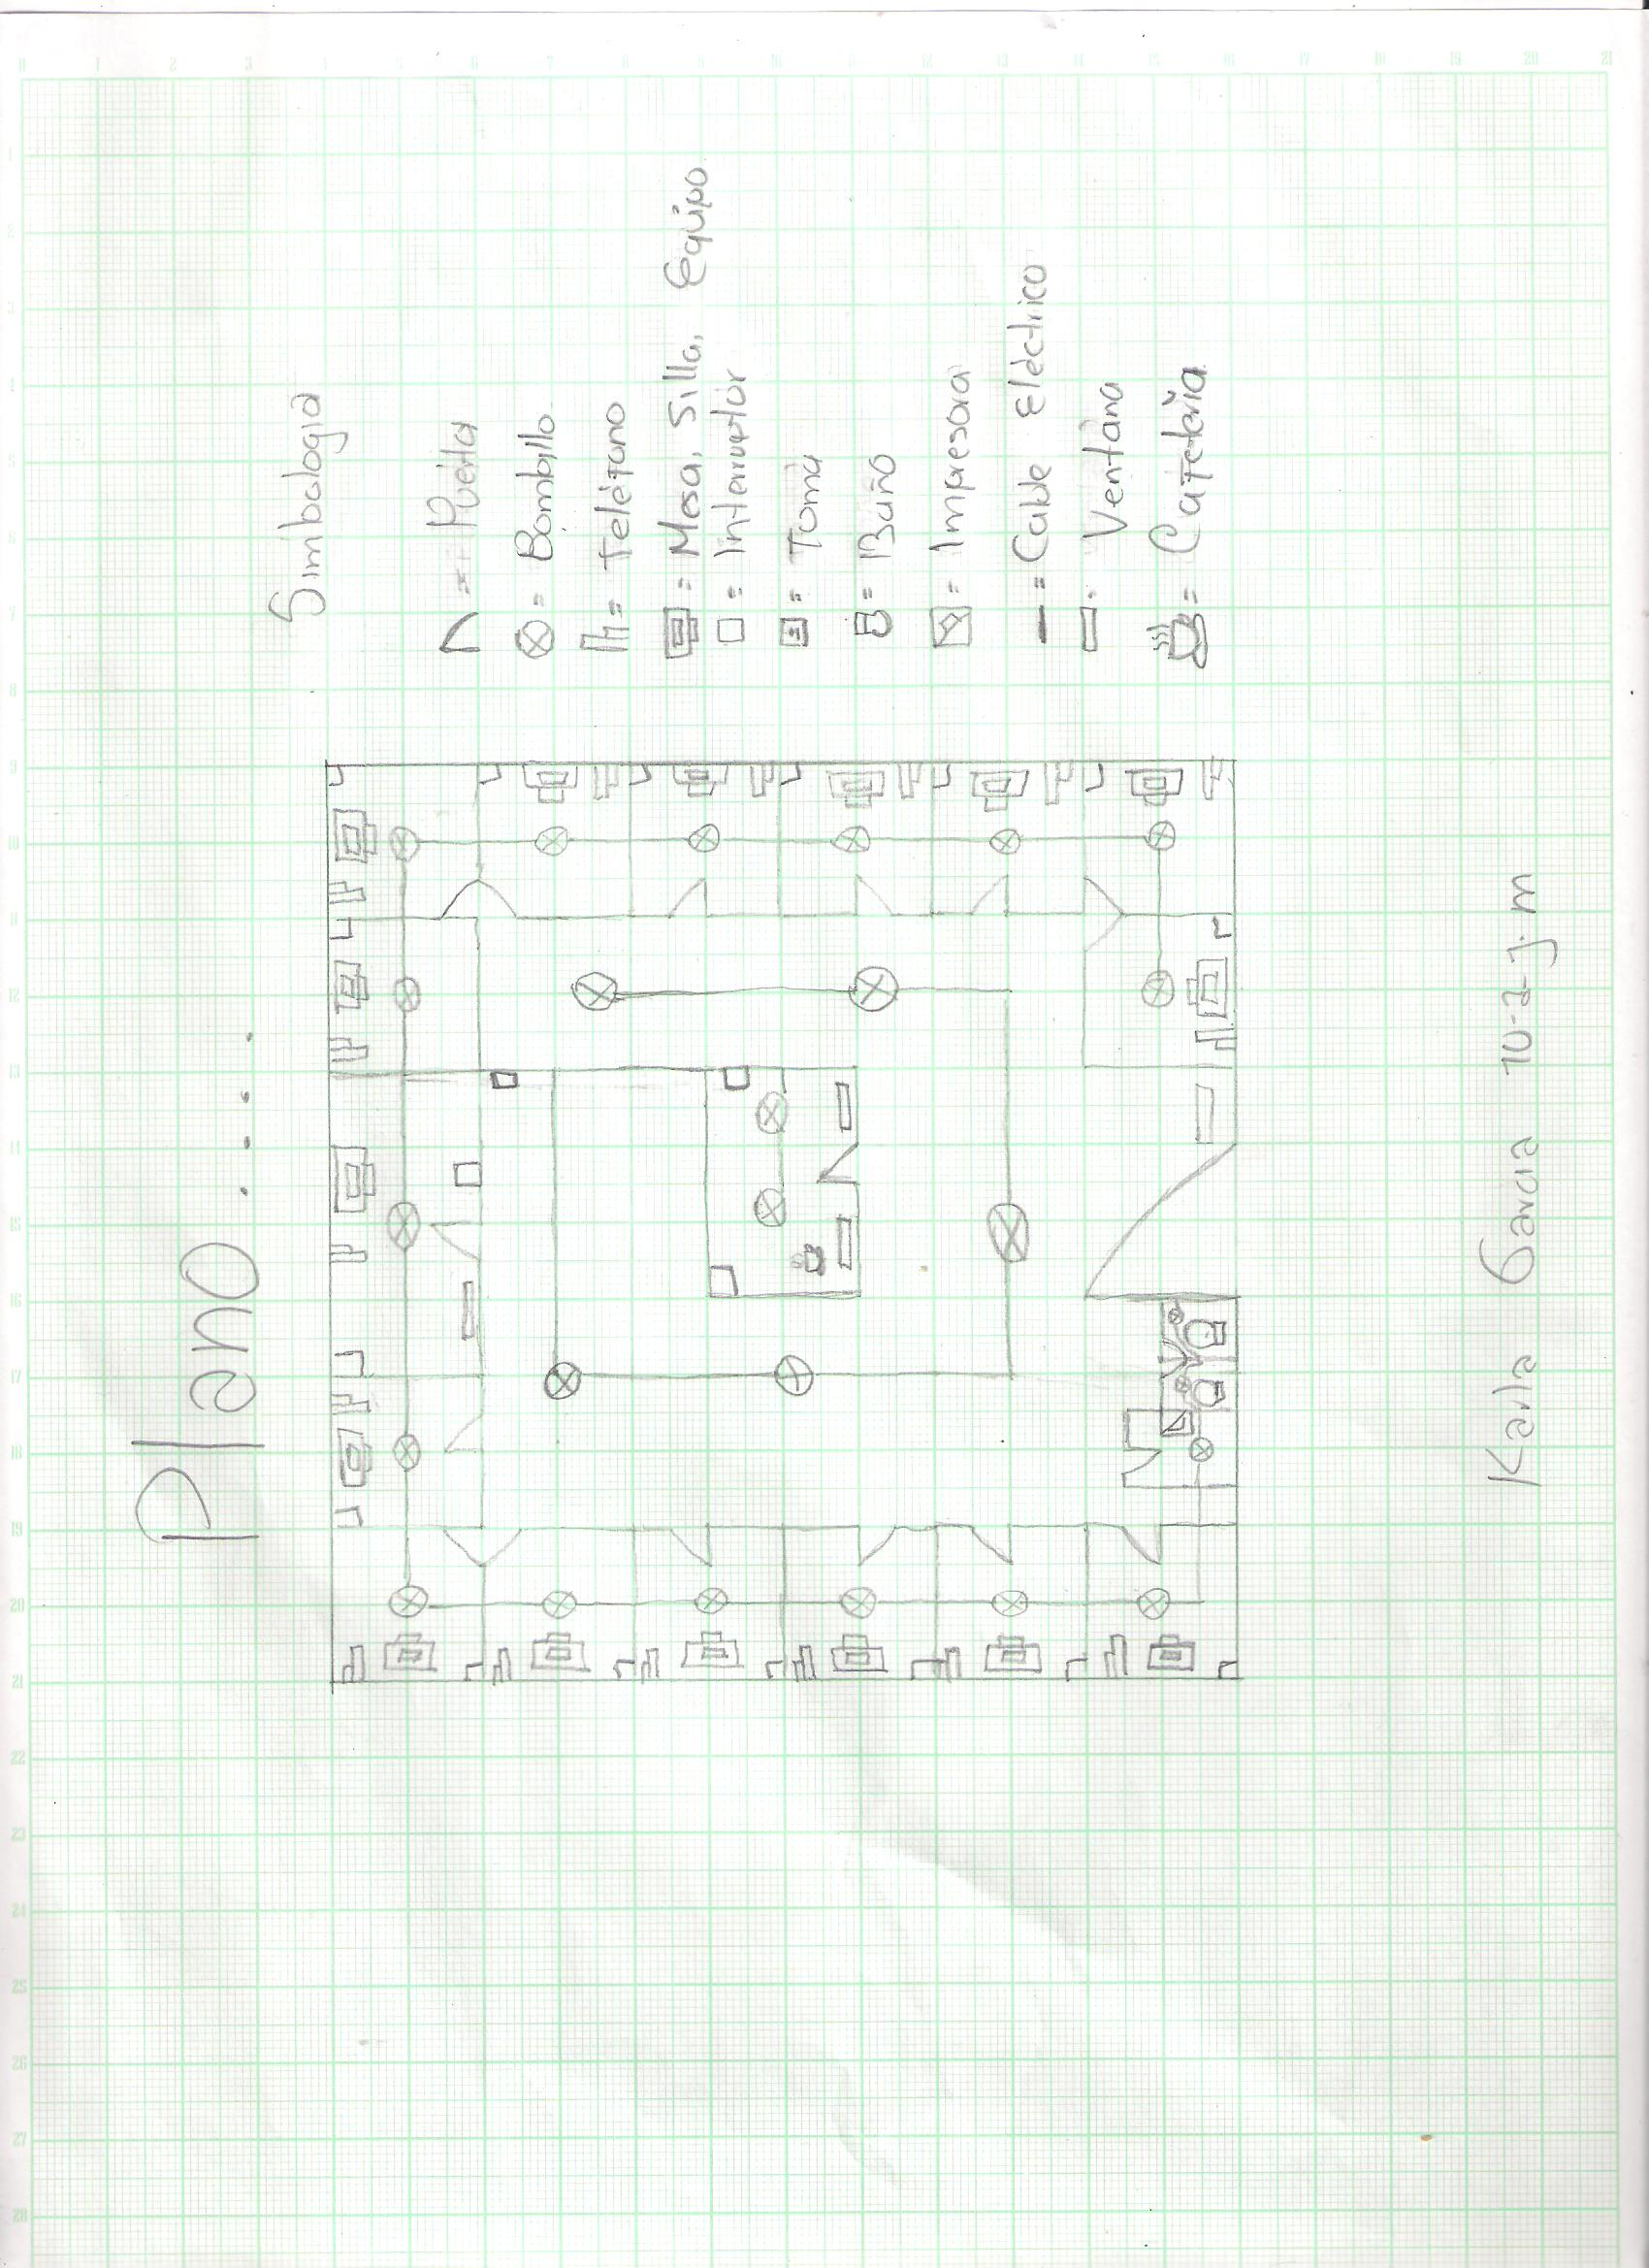 Plano....
Simbologia
= Puerta
= Bombillo
= Teléfono
= Mesa, Silla, Equipo
= Interruptor
= Toma
= Baño
= Impresora
= Cable Eléctrico
= Ventana
= Cafetería
Karla Garcia 10-2 j.m